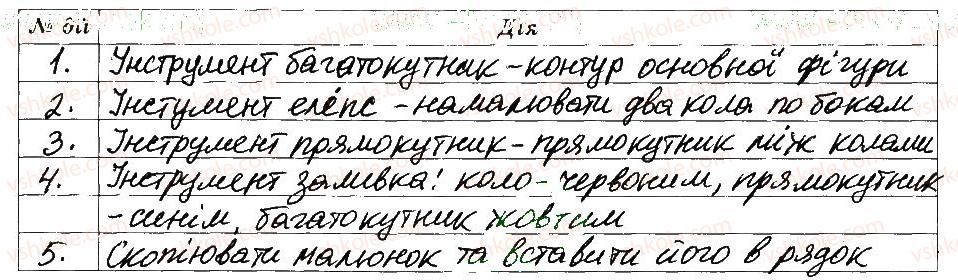 № дії Дія
1. Інструмент багатокутник - контур основної фігури
2. Інстумент елепс - намалювати два кола по бокам
3. Інструмент прямокутник - прямокутник між колами
4. Інструмент заливка: коло - червоним, прямокутник
- синім, багатокутник жовтим
5. Скопіювати малюнок та вставити його в рядок